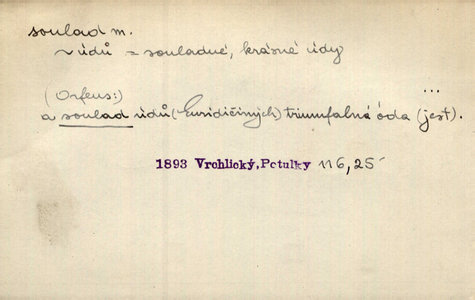 soulad m.
~ údů = souladné, krásné údy
(Orfeus:) ...
a soulad údů (Euridičiných) triumfalná óda (jest).
1893 Vrchlický, Potulky 116,25